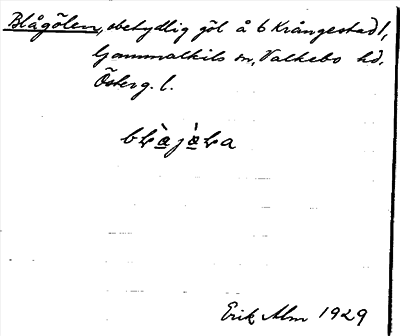 Blågölen, obetydlig göl å b Krångestad 1,
Gammalkils sn, Valkebo hd.
Österg. l.
Erik Alm 1929